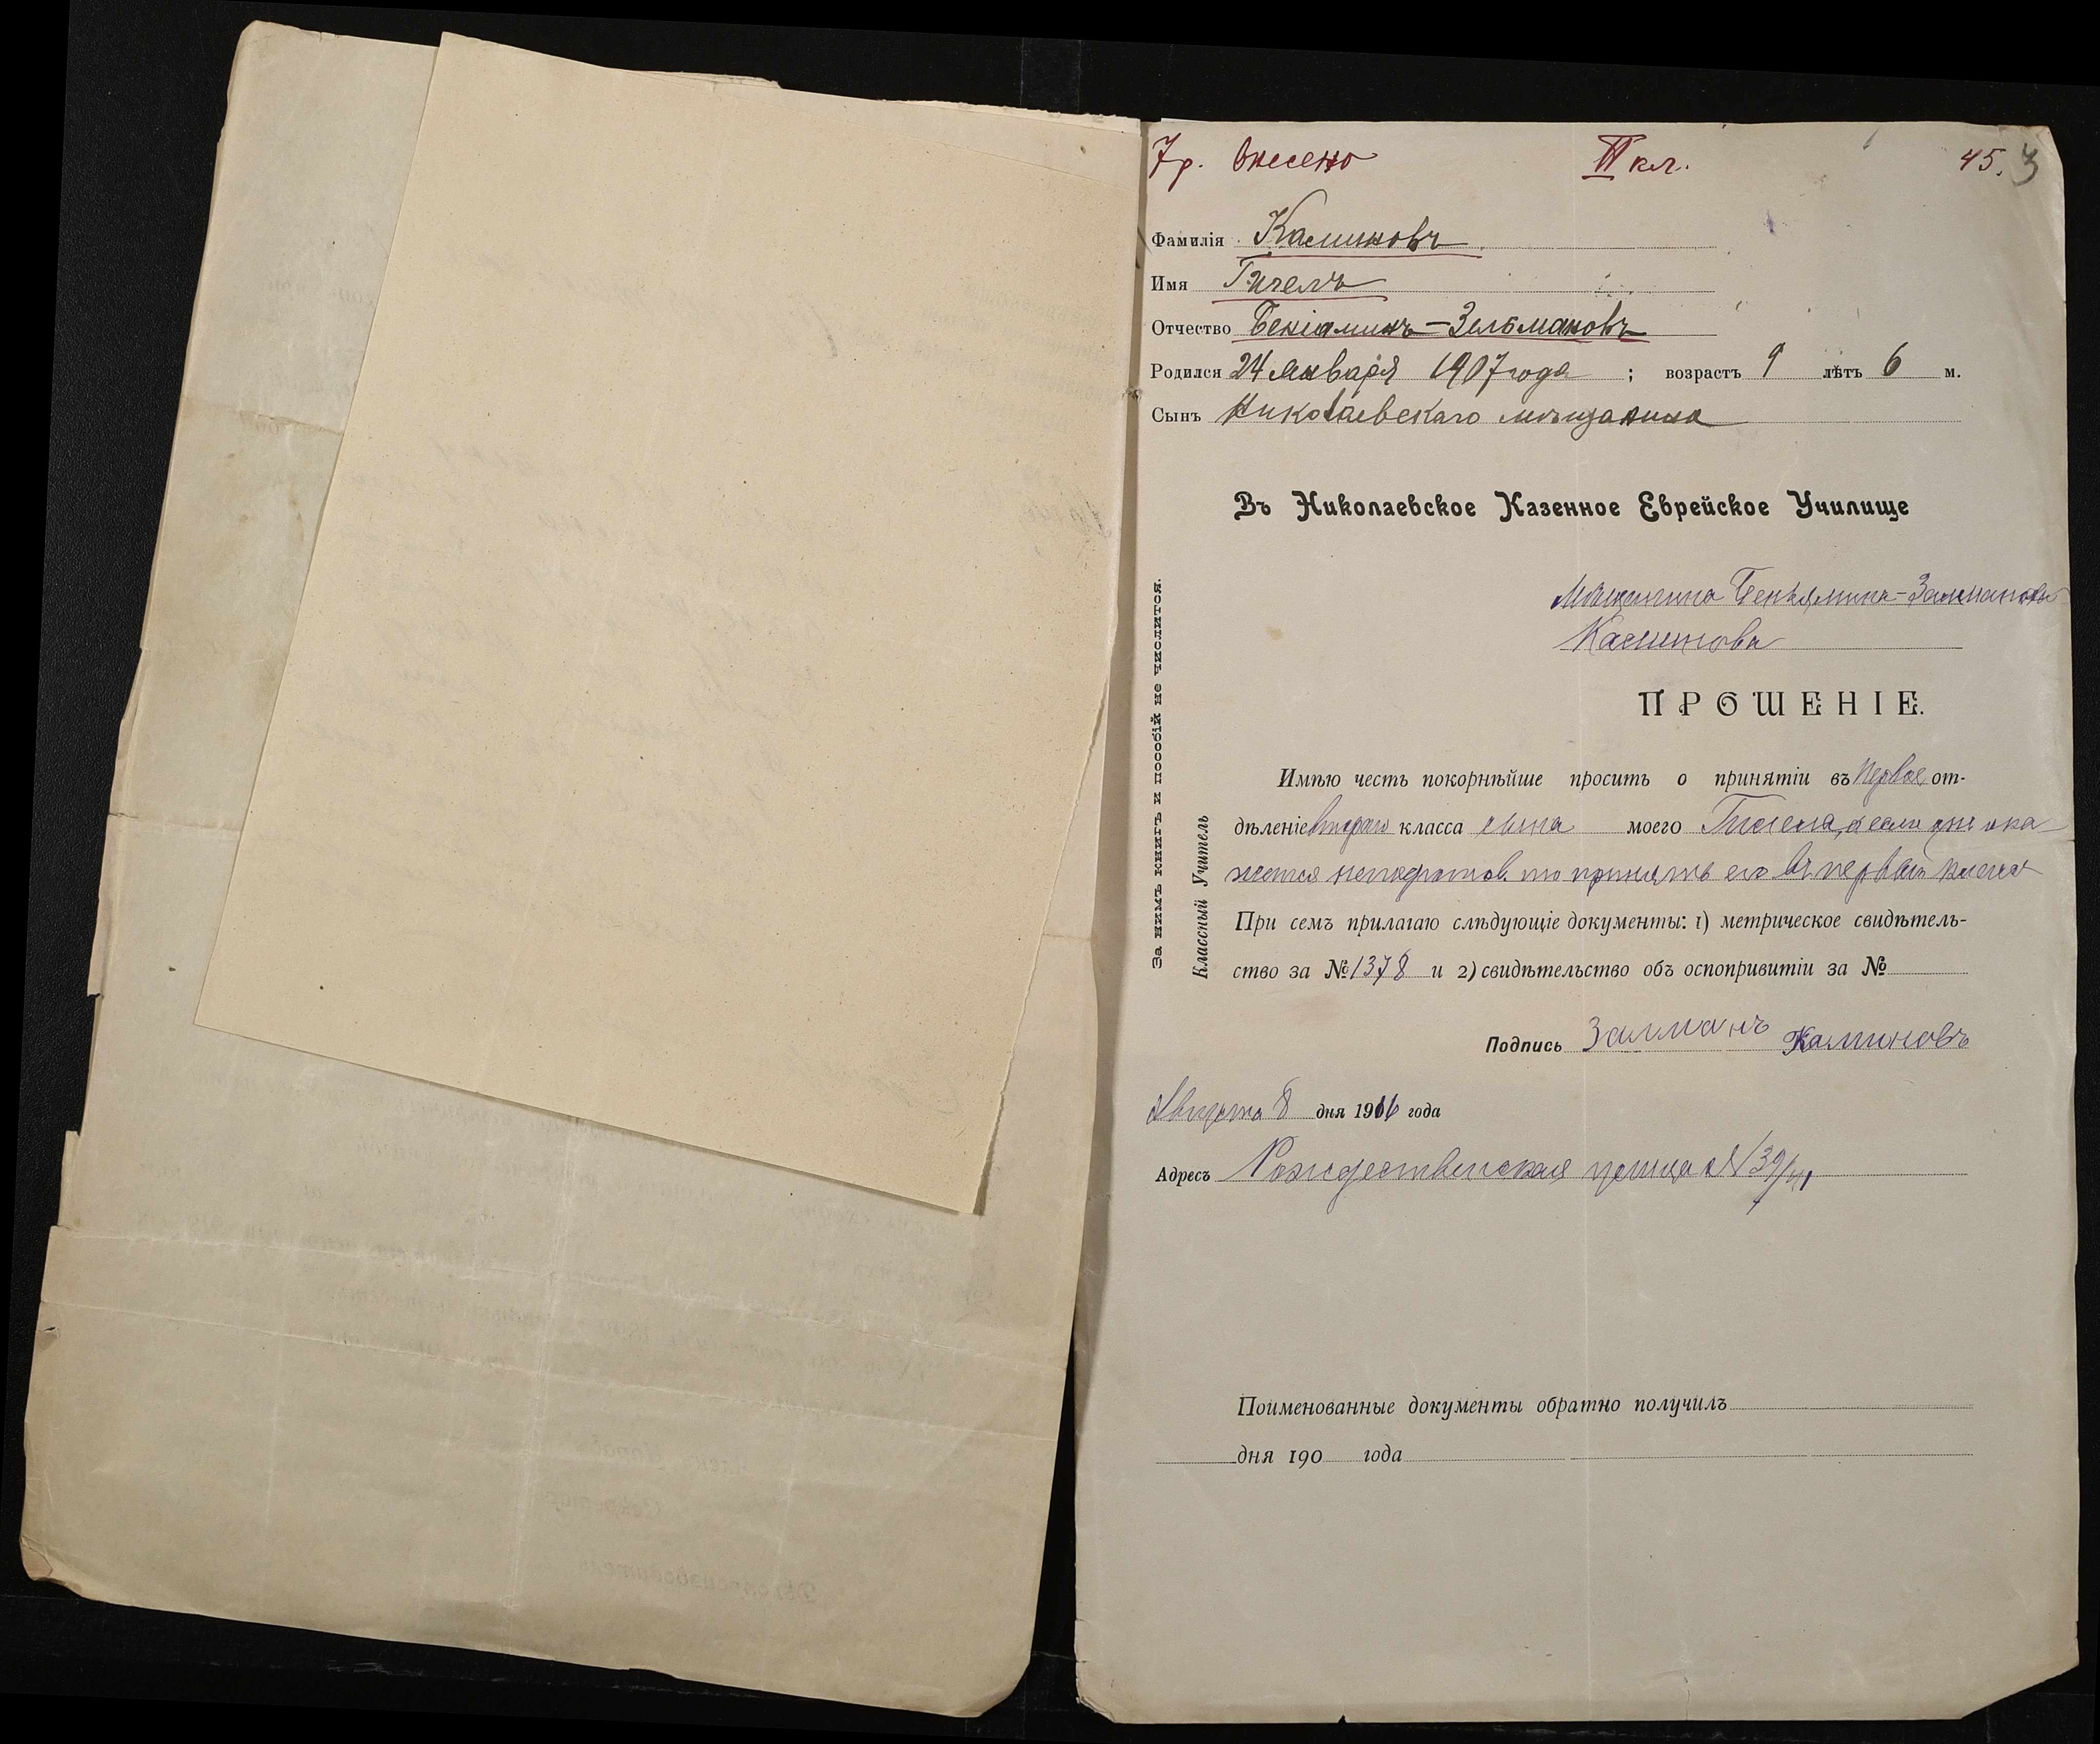 7 р. внесено II кл. 45. 3
Фамилія Калиновъ
Имя Гилель
Отчество Беніаминъ-Зельмановъ
Родился 24 января 1907 года ; возрастъ 9 лѣтъ 6 м.
Сынъ Николаевскаго мѣщанина
Въ Николаевское Казенное Еврейское Училище
Мѣщанина Беньямина-Залманова
Калинова
ПРОШЕНІЕ.
Имѣю честь покорнѣйше просить о принятіи въ Первое от-
дѣленіе второго класса сына моего Гилеля, а если онъ ока-
жется неподготов. то принять его въ первый классъ
При семъ прилагаю слѣдующіе документы: 1) метрическое свидѣтель-
ство за № 1378 и 2) свидѣтельство объ оспопривитіи за №
Подпись Залманъ Калиновъ
Августа 8 дня 1916 года
Адресъ Рождественская улица № 39/41
Поименованные документы обратно получилъ
дня 190 года
За нимъ книгъ и пособій не числится.
Классный Учитель